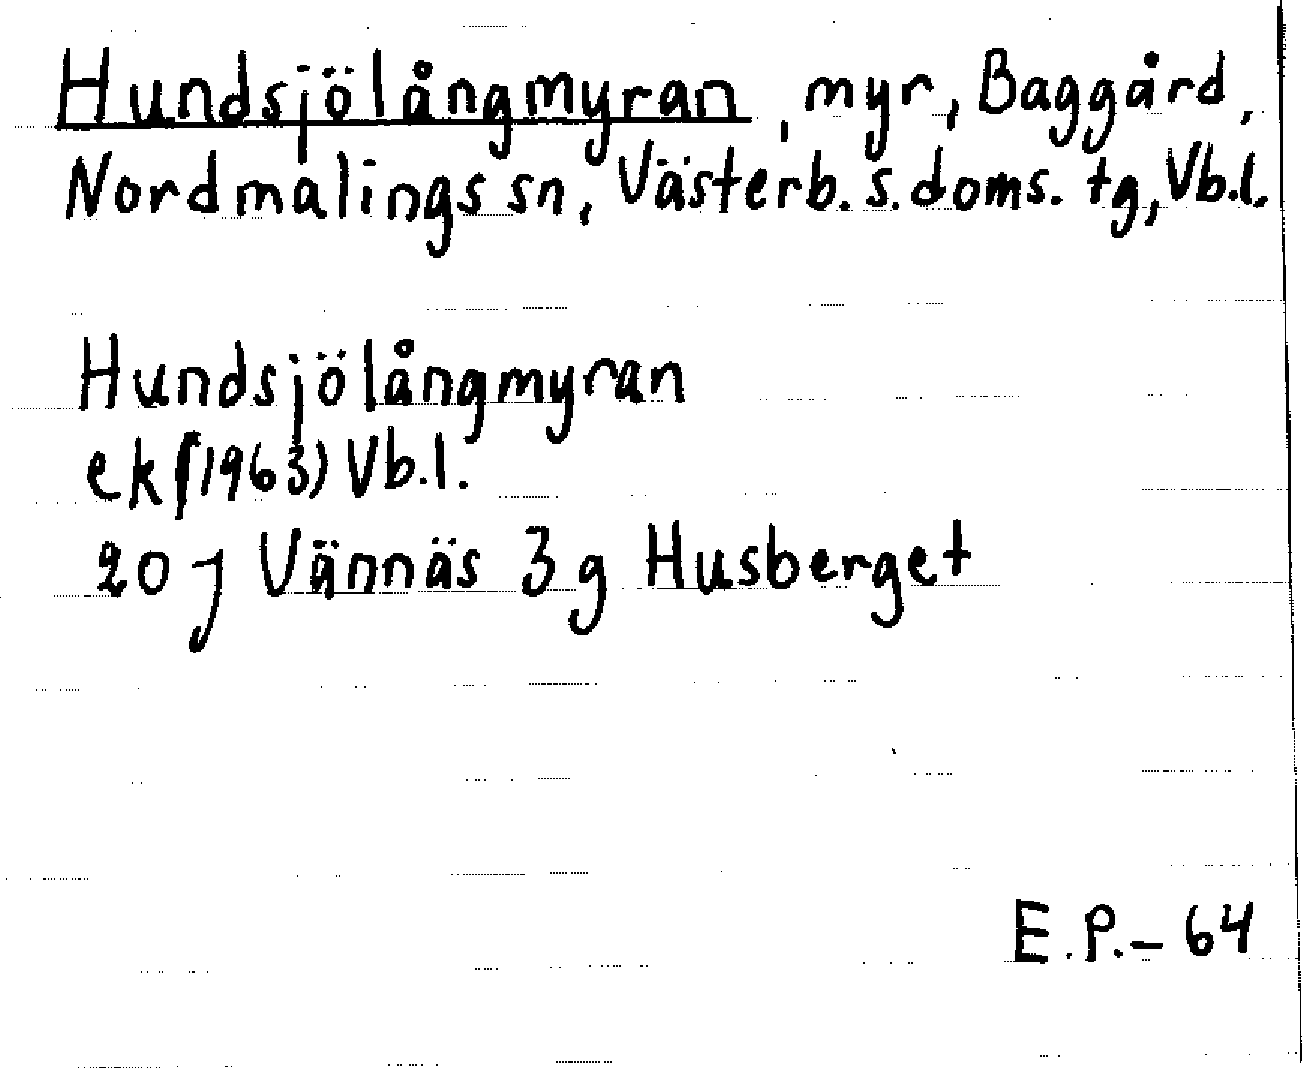 Hundsjölångmyran, myr, Baggård,
Nordmalings sn, Västerb. s. doms. tg, Vb.l.
Hundsjölångmyran
ek (1963) Vb.l.
20 J Vännäs 3 g Husberget
E.P. – 64